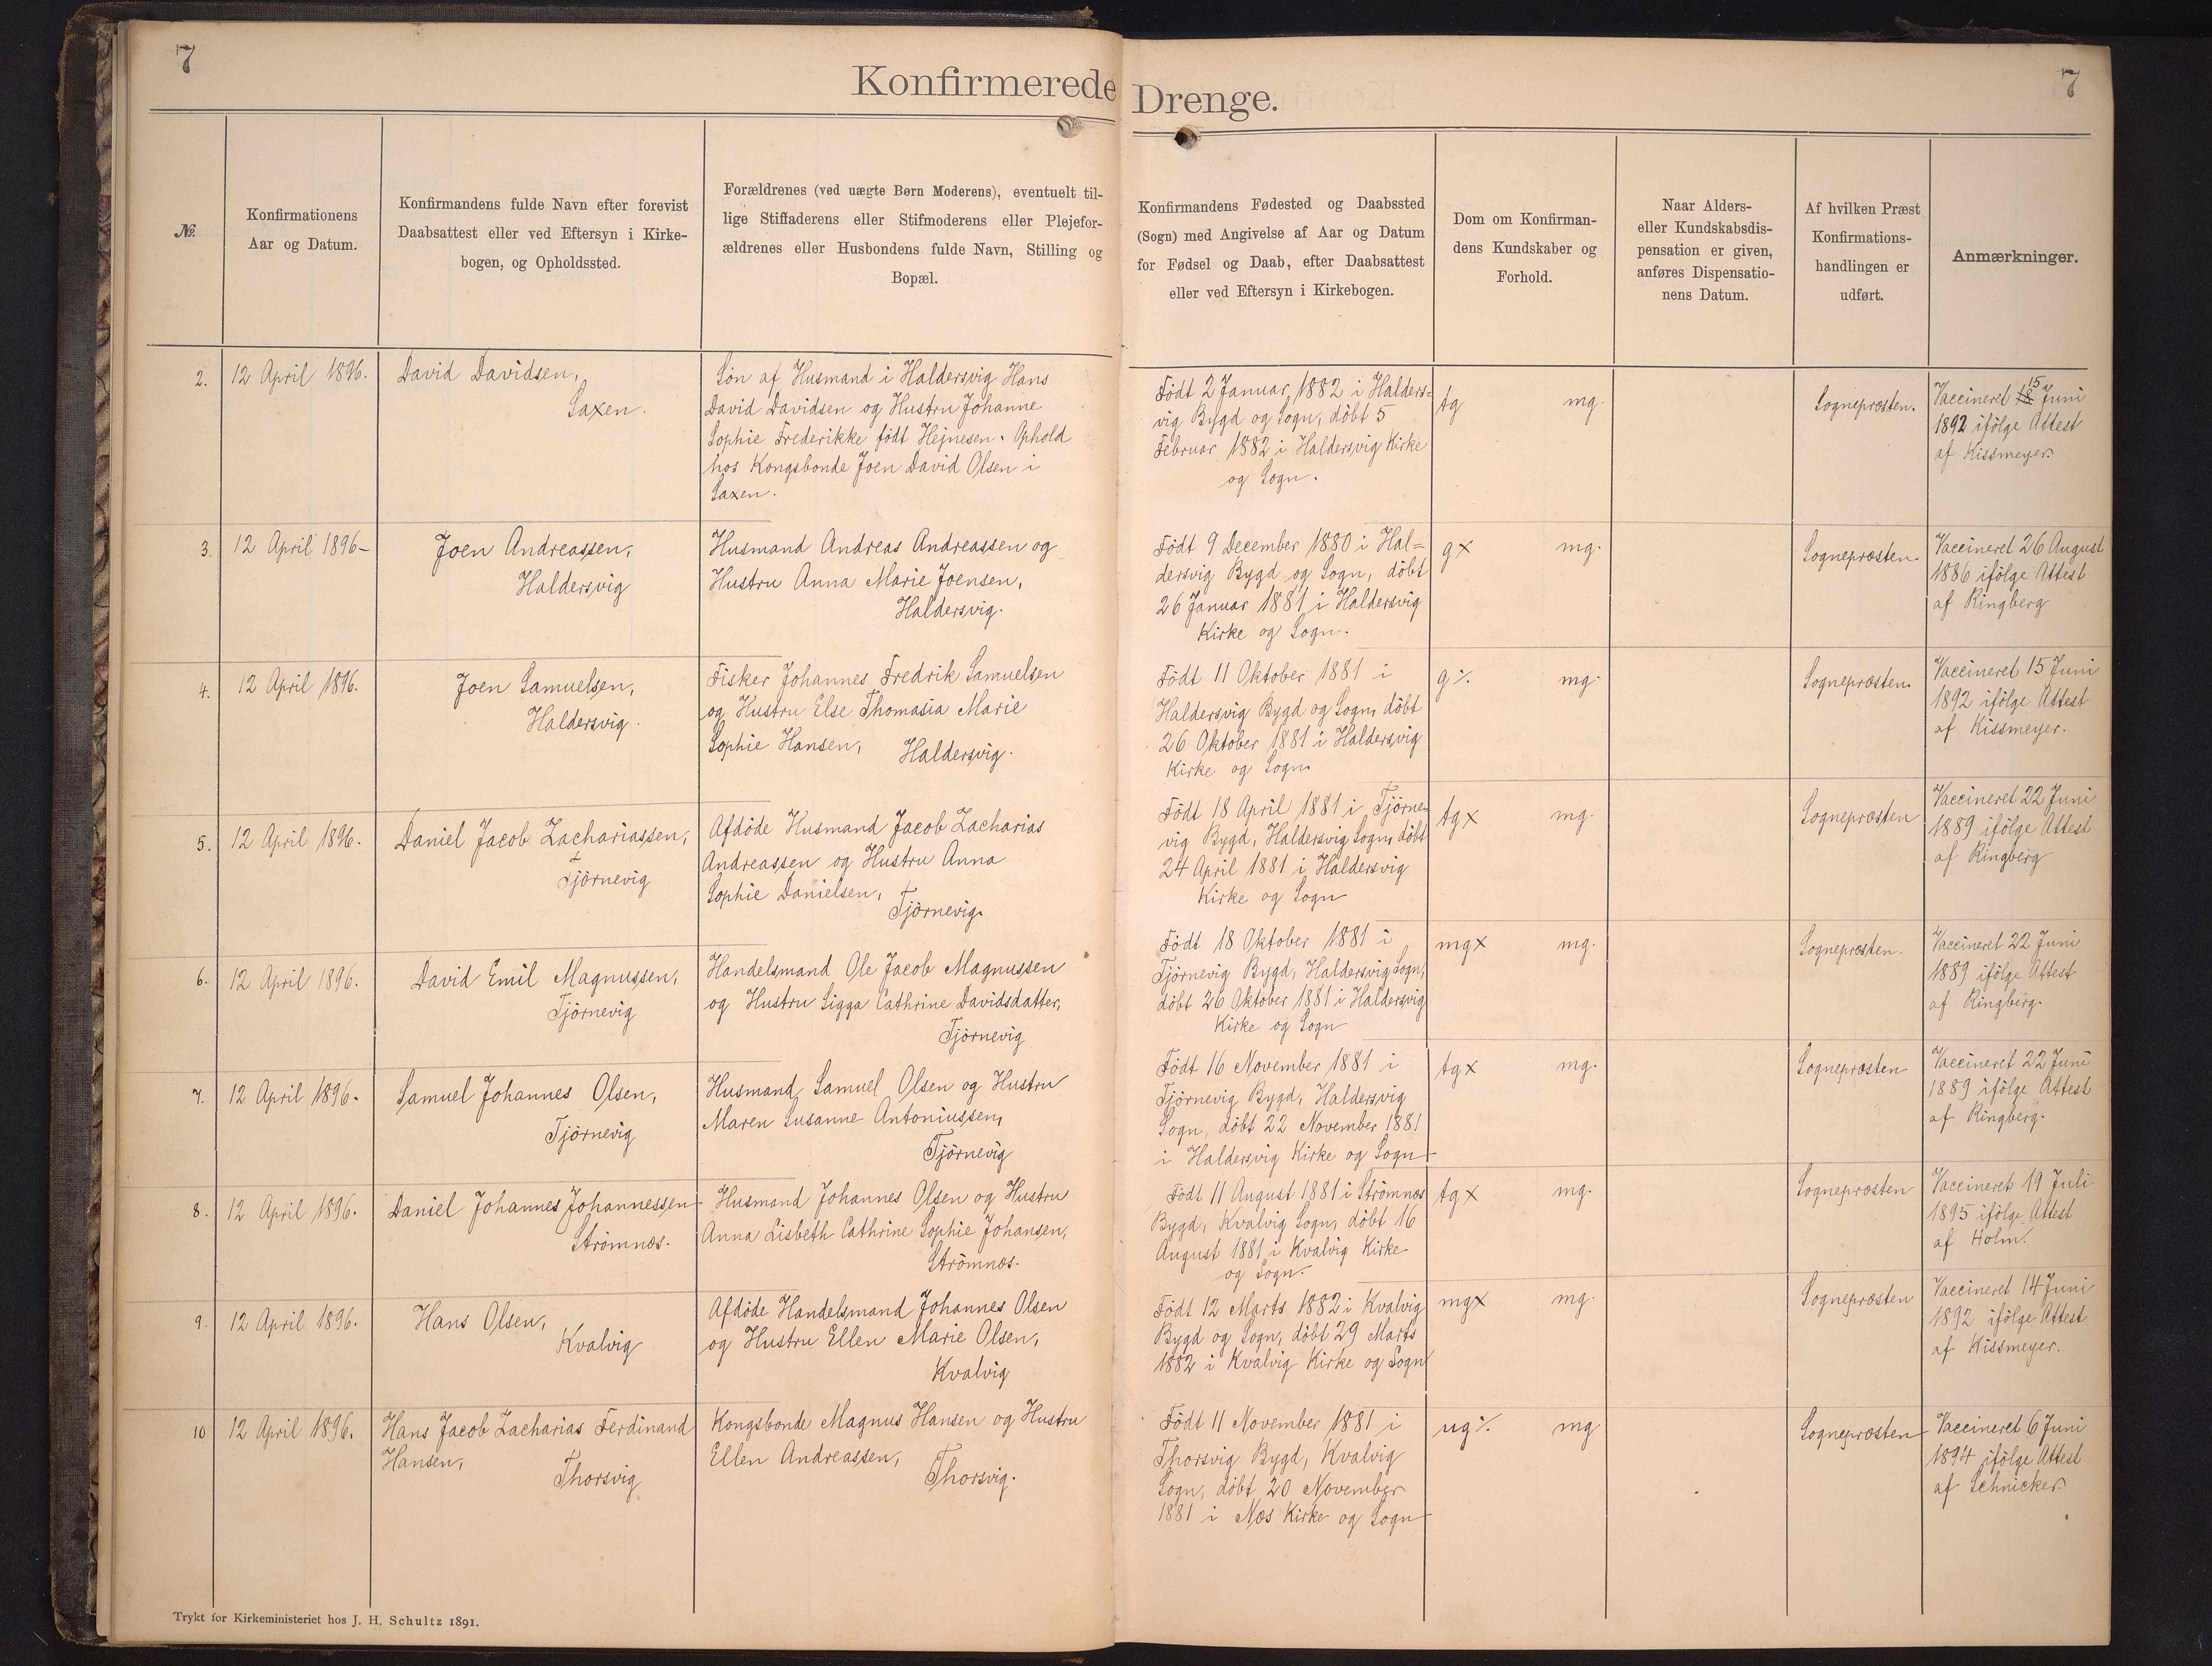 7
Konfirmerede Drenge.
7
No.
Konfirmationens
Aar og Datum.
Konfirmandens fulde Navn efter forevist
Daabsattest eller ved Eftersyn i Kirke-
bogen, og Opholdssted.
Forældrenes (ved uægte Børn Moderens), eventuelt til-
lige Stiffaderens eller Stifmoderens eller Plejefor-
ældrenes eller Husbondens fulde Navn, Stilling og
Bopæl.
Konfirmandens Fødested og Daabssted
(Sogn) med Angivelse af Aar og Datum
for Fødsel og Daab, efter Daabsattest
eller ved Eftersyn i Kirkebogen.
Dom om Konfirman-
dens Kundskaber og
Forhold.
Naar Alders-
eller Kundskabsdis-
pensation er given,
anføres Dispensatio-
nens Datum.
Af hvilken Præst
Konfirmations-
handlingen er
udført.
Anmærkninger.
2.
12 April 1896.
David Davidsen,
Saxen.
Søn af Husmand i Haldersvig Hans
David Davidsen og Hustru Johanne
Sophie Frederikke født Hejnesen. Ophold
hos Kongsbonde Joen David Olsen i
Saxen.
Født 2 Januar 1882 i Halders=
vig Bygd og Sogn, døbt 5
Februar 1882 i Haldersvig Kirke
og Sogn.
tg mg.
Sognepræsten.
Vaccineret 18 15 Juni
1892 ifølge Attest
af Kissmeyer.
3.
12 April 1896-
Joen Andreassen,
Haldersvig
Husmand Andreas Andreassen og
Hustru Anna Marie Joensen,
Haldersvig.
Født 9 December 1880 i Hal=
dersvig Bygd og Sogn, døbt
26 Januar 1881 i Haldersvig
Kirke og Sogn.
gx mg.
Sognepræsten.
Vaccineret 26 August
1886 ifølge Attest
af Ringberg
4.
12 April 1896.
Joen Samuelsen,
Haldersvig.
Fisker Johannes Fredrik Samuelsen
og Hustru Else Thomasia Marie
Sophie Hansen,
Haldersvig.
Født 11 Oktober 1881 i
Haldersvig Bygd og Sogn, døbt
26 Oktober 1881 i Haldersvig
Kirke og Sogn.
g% mg.
Sognepræsten.
Vaccineret 15 Juni
1892 ifølge Attest
af Kissmeyer.
5.
12 April 1896.
Daniel Jacob Zachariassen,
Tjørnevig
Afdøde Husmand Jacob Zacharias
Andreassen og Hustru Anna
Sophie Danielsen,
Tjørnevig.
Født 18 April 1881 i Tjørne-
vig Bygd, Haldersvig Sogn, døbt
24 April 1881 i Haldersvig
Kirke og Sogn
tgx mg.
Sognepræsten
Vaccineret 22 Juni
1889 ifølge Attest
af Ringberg
6.
12 April 1896.
David Emil Magnussen,
Tjørnevig
Handelsmand Ole Jacob Magnussen
og Hustru Sigga Cathrine Davidsdatter,
Tjørnevig
Født 18 Oktober 1881 i
Tjørnevig Bygd, Haldersvig Sogn,
døbt 26 Oktober 1881 i Haldersvig
Kirke og Sogn
mgx mg.
Sognepræsten.
Vaccineret 22 Juni
1889 ifølge Attest
af Ringberg.
7.
12 April 1896.
Samuel Johannes Olsen,
Tjørnevig
Husmand Samuel Olsen og Hustru
Maren Susanne Antoniussen,
Tjørnevig
Født 16 November 1881 i
Tjørnevig Bygd, Haldersvig
Sogn, døbt 22 November 1881
i Haldersvig Kirke og Sogn
tgx mg.
Sognepræsten
Vaccineret 22 Juni
1889 ifølge Attest
af Ringberg.
8.
12 April 1896.
Daniel Johannes Johannessen
Strømnæs.
Husmand Johannes Olsen og Hustru
Anna Lisbeth Cathrine Sophie Johansen,
Strømnæs.
Født 11 August 1881 i Strømnæs
Bygd, Kvalvig Sogn, døbt 16
August 1881 i Kvalvig Kirke
og Sogn.
tgx mg.
Sognepræsten
Vaccineret 19 Juli
1895 ifølge Attest
af Holm.
9.
12 April 1896.
Hans Olsen,
Kvalvig
Afdøde Handelsmand Johannes Olsen
og Hustru Ellen Marie Olsen,
Kvalvig
Født 12 Marts 1882 i Kvalvig
Bygd og Sogn, døbt 29 Marts
1882 i Kvalvig Kirke og Sogn
mgx mg.
Sognepræsten
Vaccineret 14 Juni
1892 ifølge Attest
af Kissmeyer.
10
12 April 1896.
Hans Jacob Zacharias Ferdinand
Hansen,
Thorsvig
Kongsbonde Magnus Hansen og Hustru
Ellen Andreassen,
Thorsvig.
Født 11 November 1881 i
Thorsvig Bygd, Kvalvig
Sogn, døbt 20 November
1881 i Næs Kirke og Sogn
ug% mg
Sognepræsten
Vaccineret 6 Juni
1894 ifølge Attest
af Schnicker.
Trykt for Kirkeministeriet hos J. H. Schultz 1891.